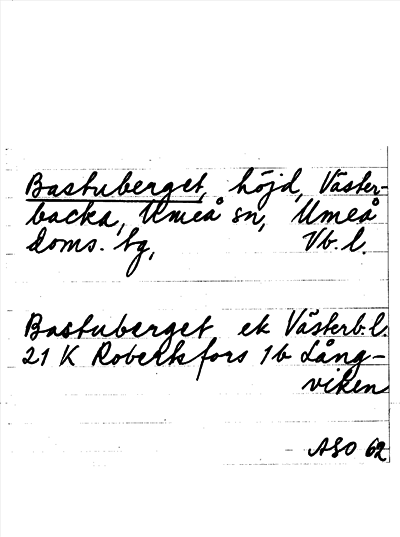 Bastuberget, höjd, Väster-
backa, Umeå sn, Umeå
Doms. tg, Vb. l.
Bastuberget ek Västerb.l.
21 K Robertsfors 1b Lång-
viken
ASO 62